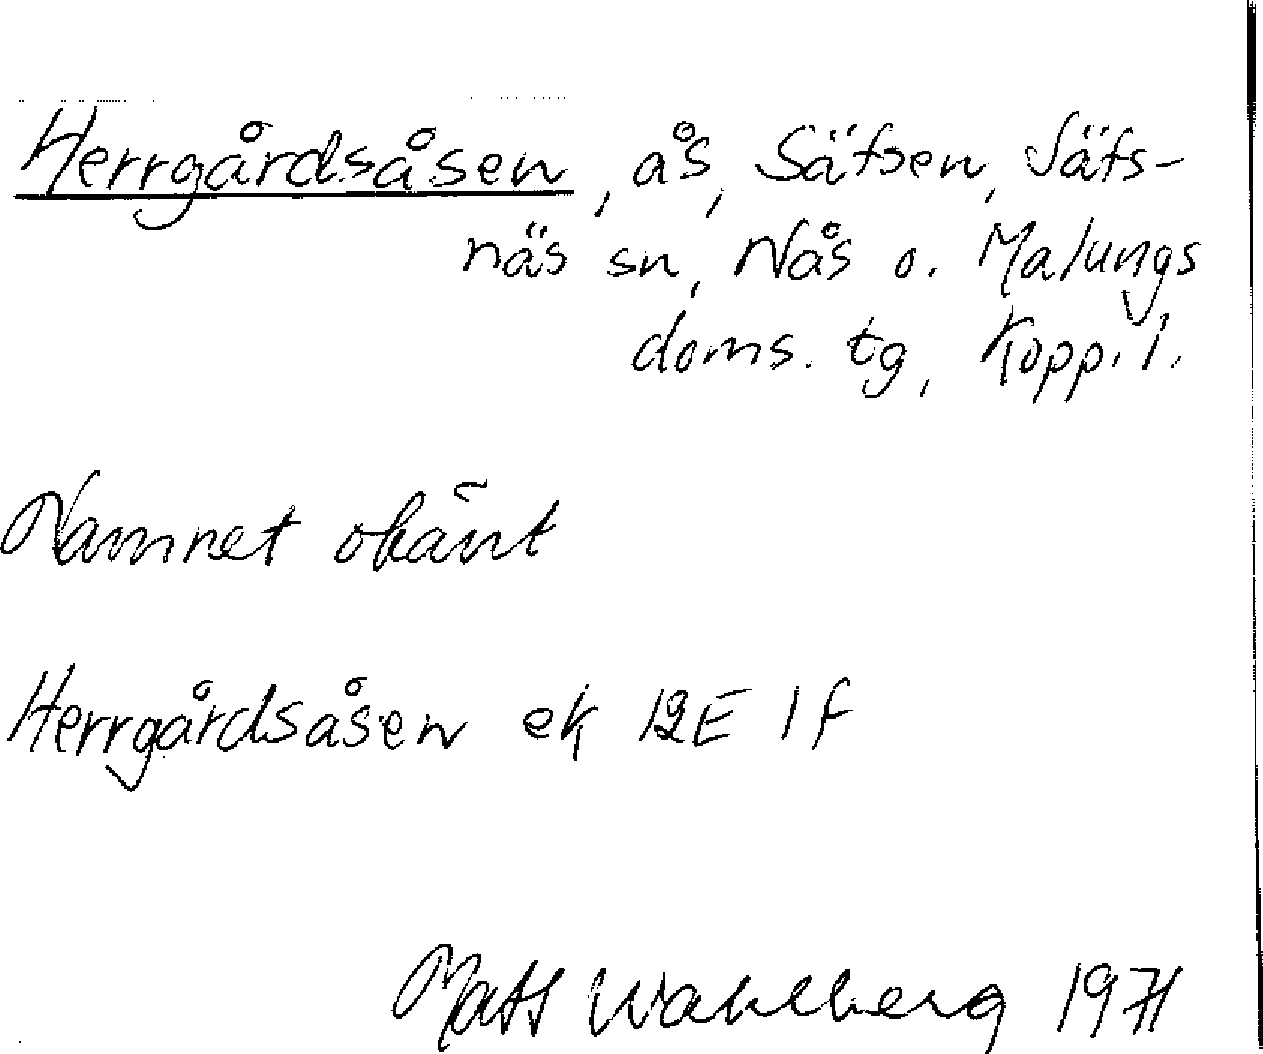 Herrgårdsåsen, ås, Säfsen, Säfs-
näs sn, Nås o. Malungs
doms. tg, Kopp. l.
Namnet okänt
Herrgårdsåsen ek 12E 1f
Mats Wahlberg 1971